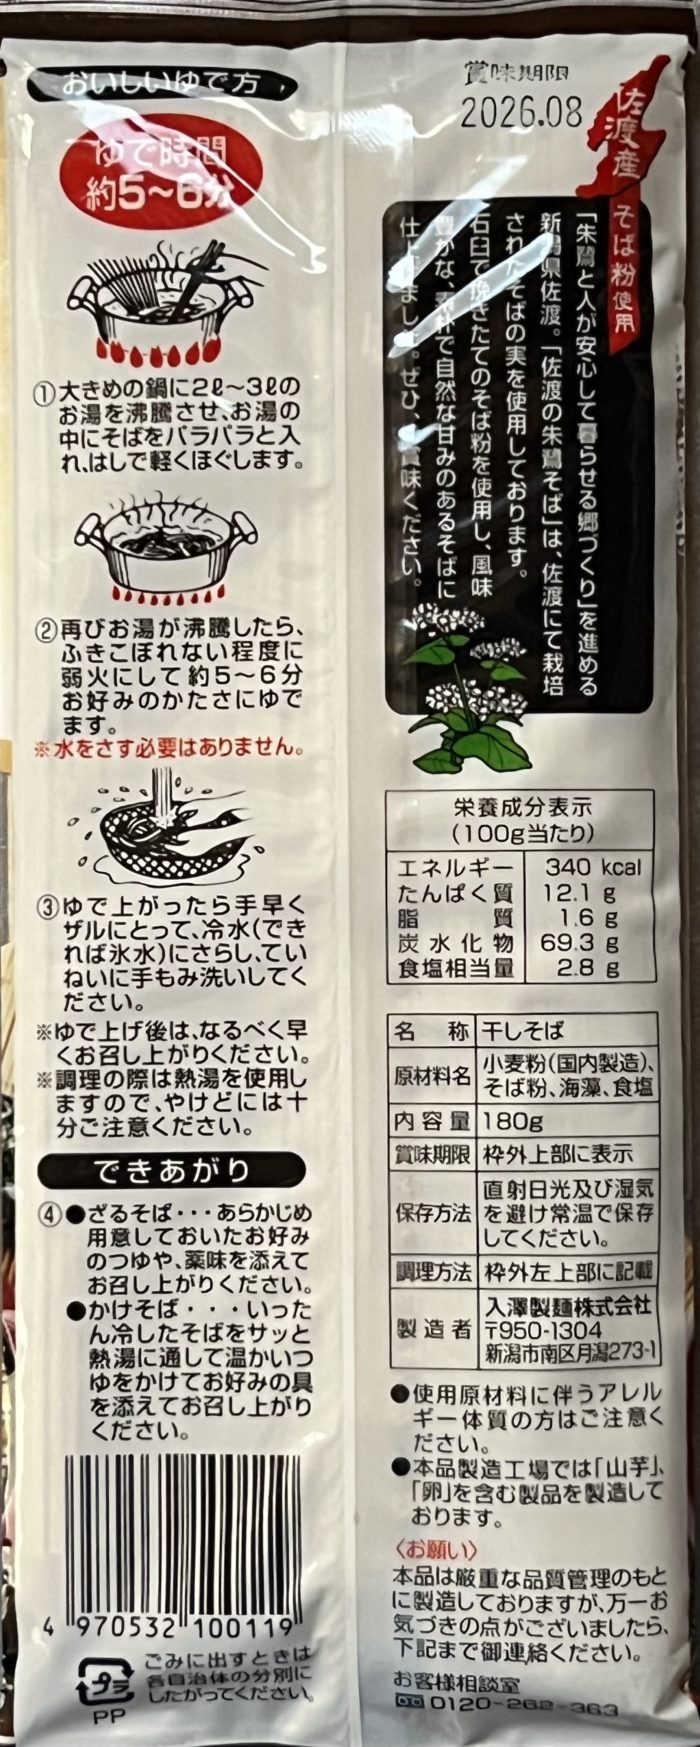 おいしいゆで方
ゆで時間
約5〜6分
①大きめの鍋に2ℓ〜3ℓの
お湯を沸騰させ、お湯の
中にそばをパラパラと入
れ、はしで軽くほぐします。
②再びお湯が沸騰したら、
ふきこぼれない程度に
弱火にして約5〜6分
お好みのかたさにゆで
ます。
※水をさす必要はありません。
③ゆで上がったら手早く
ザルにとって、冷水(でき
れば氷水)にさらし、てい
ねいに手もみ洗いしてく
ださい。
※ゆで上げ後は、なるべく早
くお召し上がりください。
※調理の際は熱湯を使用し
ますので、やけどには十
分ご注意ください。
できあがり
④●ざるそば・・・あらかじめ
用意しておいたお好み
のつゆや、薬味を添えて
お召し上がりください。
●かけそば・・・いった
ん冷したそばをサッと
熱湯に通して温かいつ
ゆをかけてお好みの具
を添えてお召し上がり
ください。
4 970532 100119
プラ
PP
ごみに出すときは
各自治体の分別に
したがってください。
賞味期限
2026.08
佐渡産
そば粉使用
「朱鷺と人が安心して暮らせる郷づくり」を進める
新潟県佐渡。「佐渡の朱鷺そば」は、佐渡にて栽培
されたそばの実を使用しております。
石臼で挽きたてのそば粉を使用し、風味
豊かな、素朴で自然な甘みのあるそばに
仕上げました。ぜひ、ご賞味ください。
栄養成分表示
(100g当たり)
エネルギー 340 kcal
たんぱく質 12.1 g
脂質 1.6 g
炭水化物 69.3 g
食塩相当量 2.8 g
名称 干しそば
原材料名 小麦粉(国内製造)、
そば粉、海藻、食塩
内容量 180g
賞味期限 枠外上部に表示
保存方法 直射日光及び湿気
を避け常温で保存
してください。
調理方法 枠外左上部に記載
製造者 入澤製麺株式会社
〒950-1304
新潟市南区月潟273-1
●使用原材料に伴うアレル
ギー体質の方はご注意く
ださい。
●本品製造工場では「山芋」、
「卵」を含む製品を製造して
おります。
〈お願い〉
本品は厳重な品質管理のもと
に製造しておりますが、万一お
気づきの点がございましたら、
下記まで御連絡ください。
お客様相談室
0120-262-363